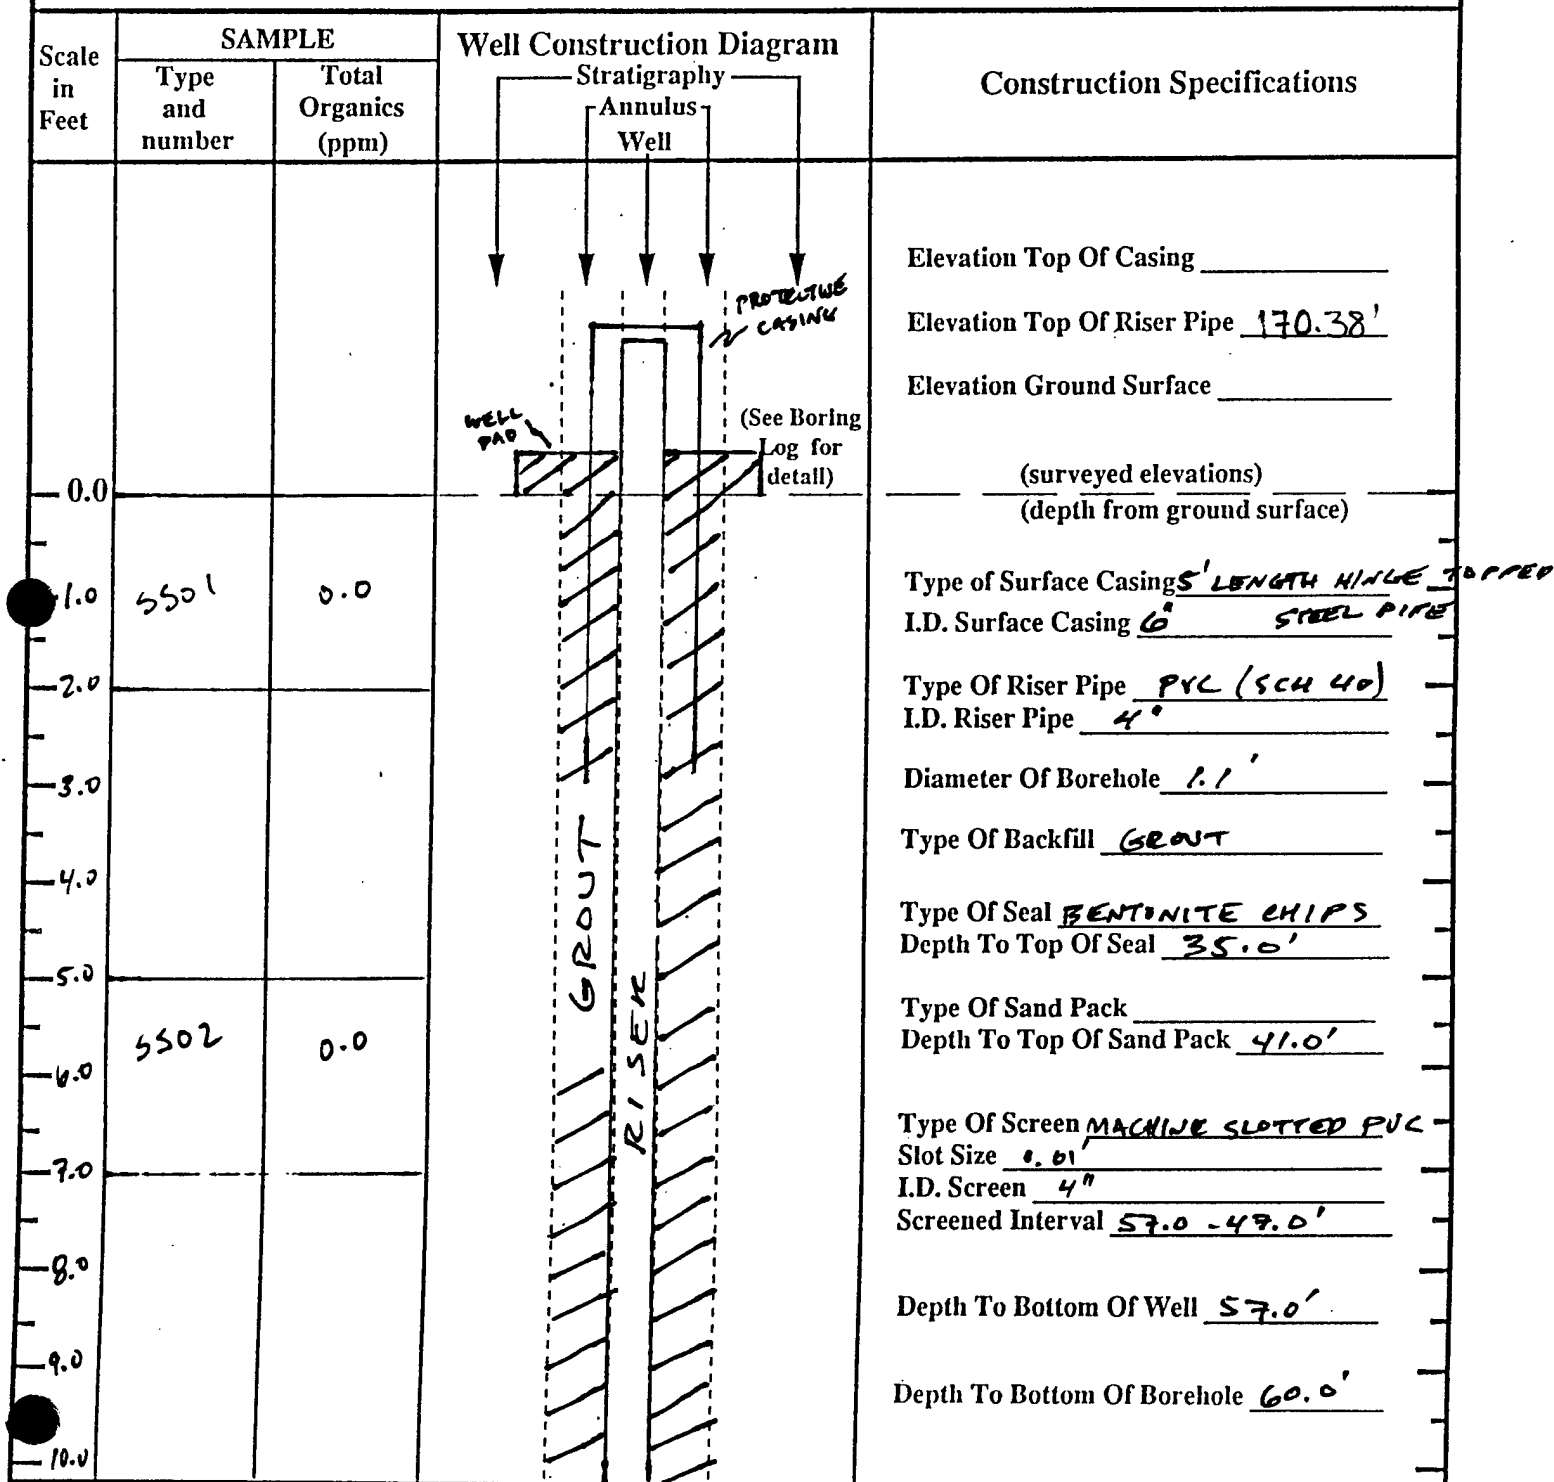 Scale
in
Feet
SAMPLE
Type
and
number
Total
Organics
(ppm)
Well Construction Diagram
Stratigraphy
Annulus
Well
Construction Specifications
PROTECTIVE
CASING
WELL
PAD
(See Boring
Log for
detail)
0.0
1.0
2.0
3.0
4.0
5.0
6.0
7.0
8.0
9.0
10.0
SS01
0.0
SS02
0.0
GROUT
RISER
Elevation Top Of Casing
Elevation Top Of Riser Pipe 170.38'
Elevation Ground Surface
(surveyed elevations)
(depth from ground surface)
Type of Surface Casing 5' LENGTH HINGE TOPPED
I.D. Surface Casing 6" STEEL PIPE
Type Of Riser Pipe PVC (SCH 40)
I.D. Riser Pipe 4"
Diameter Of Borehole 1.1'
Type Of Backfill GROUT
Type Of Seal BENTONITE CHIPS
Depth To Top Of Seal 35.0'
Type Of Sand Pack
Depth To Top Of Sand Pack 41.0'
Type Of Screen MACHINE SLOTTED PVC
Slot Size 0.01'
I.D. Screen 4"
Screened Interval 57.0 - 47.0'
Depth To Bottom Of Well 57.0'
Depth To Bottom Of Borehole 60.0'